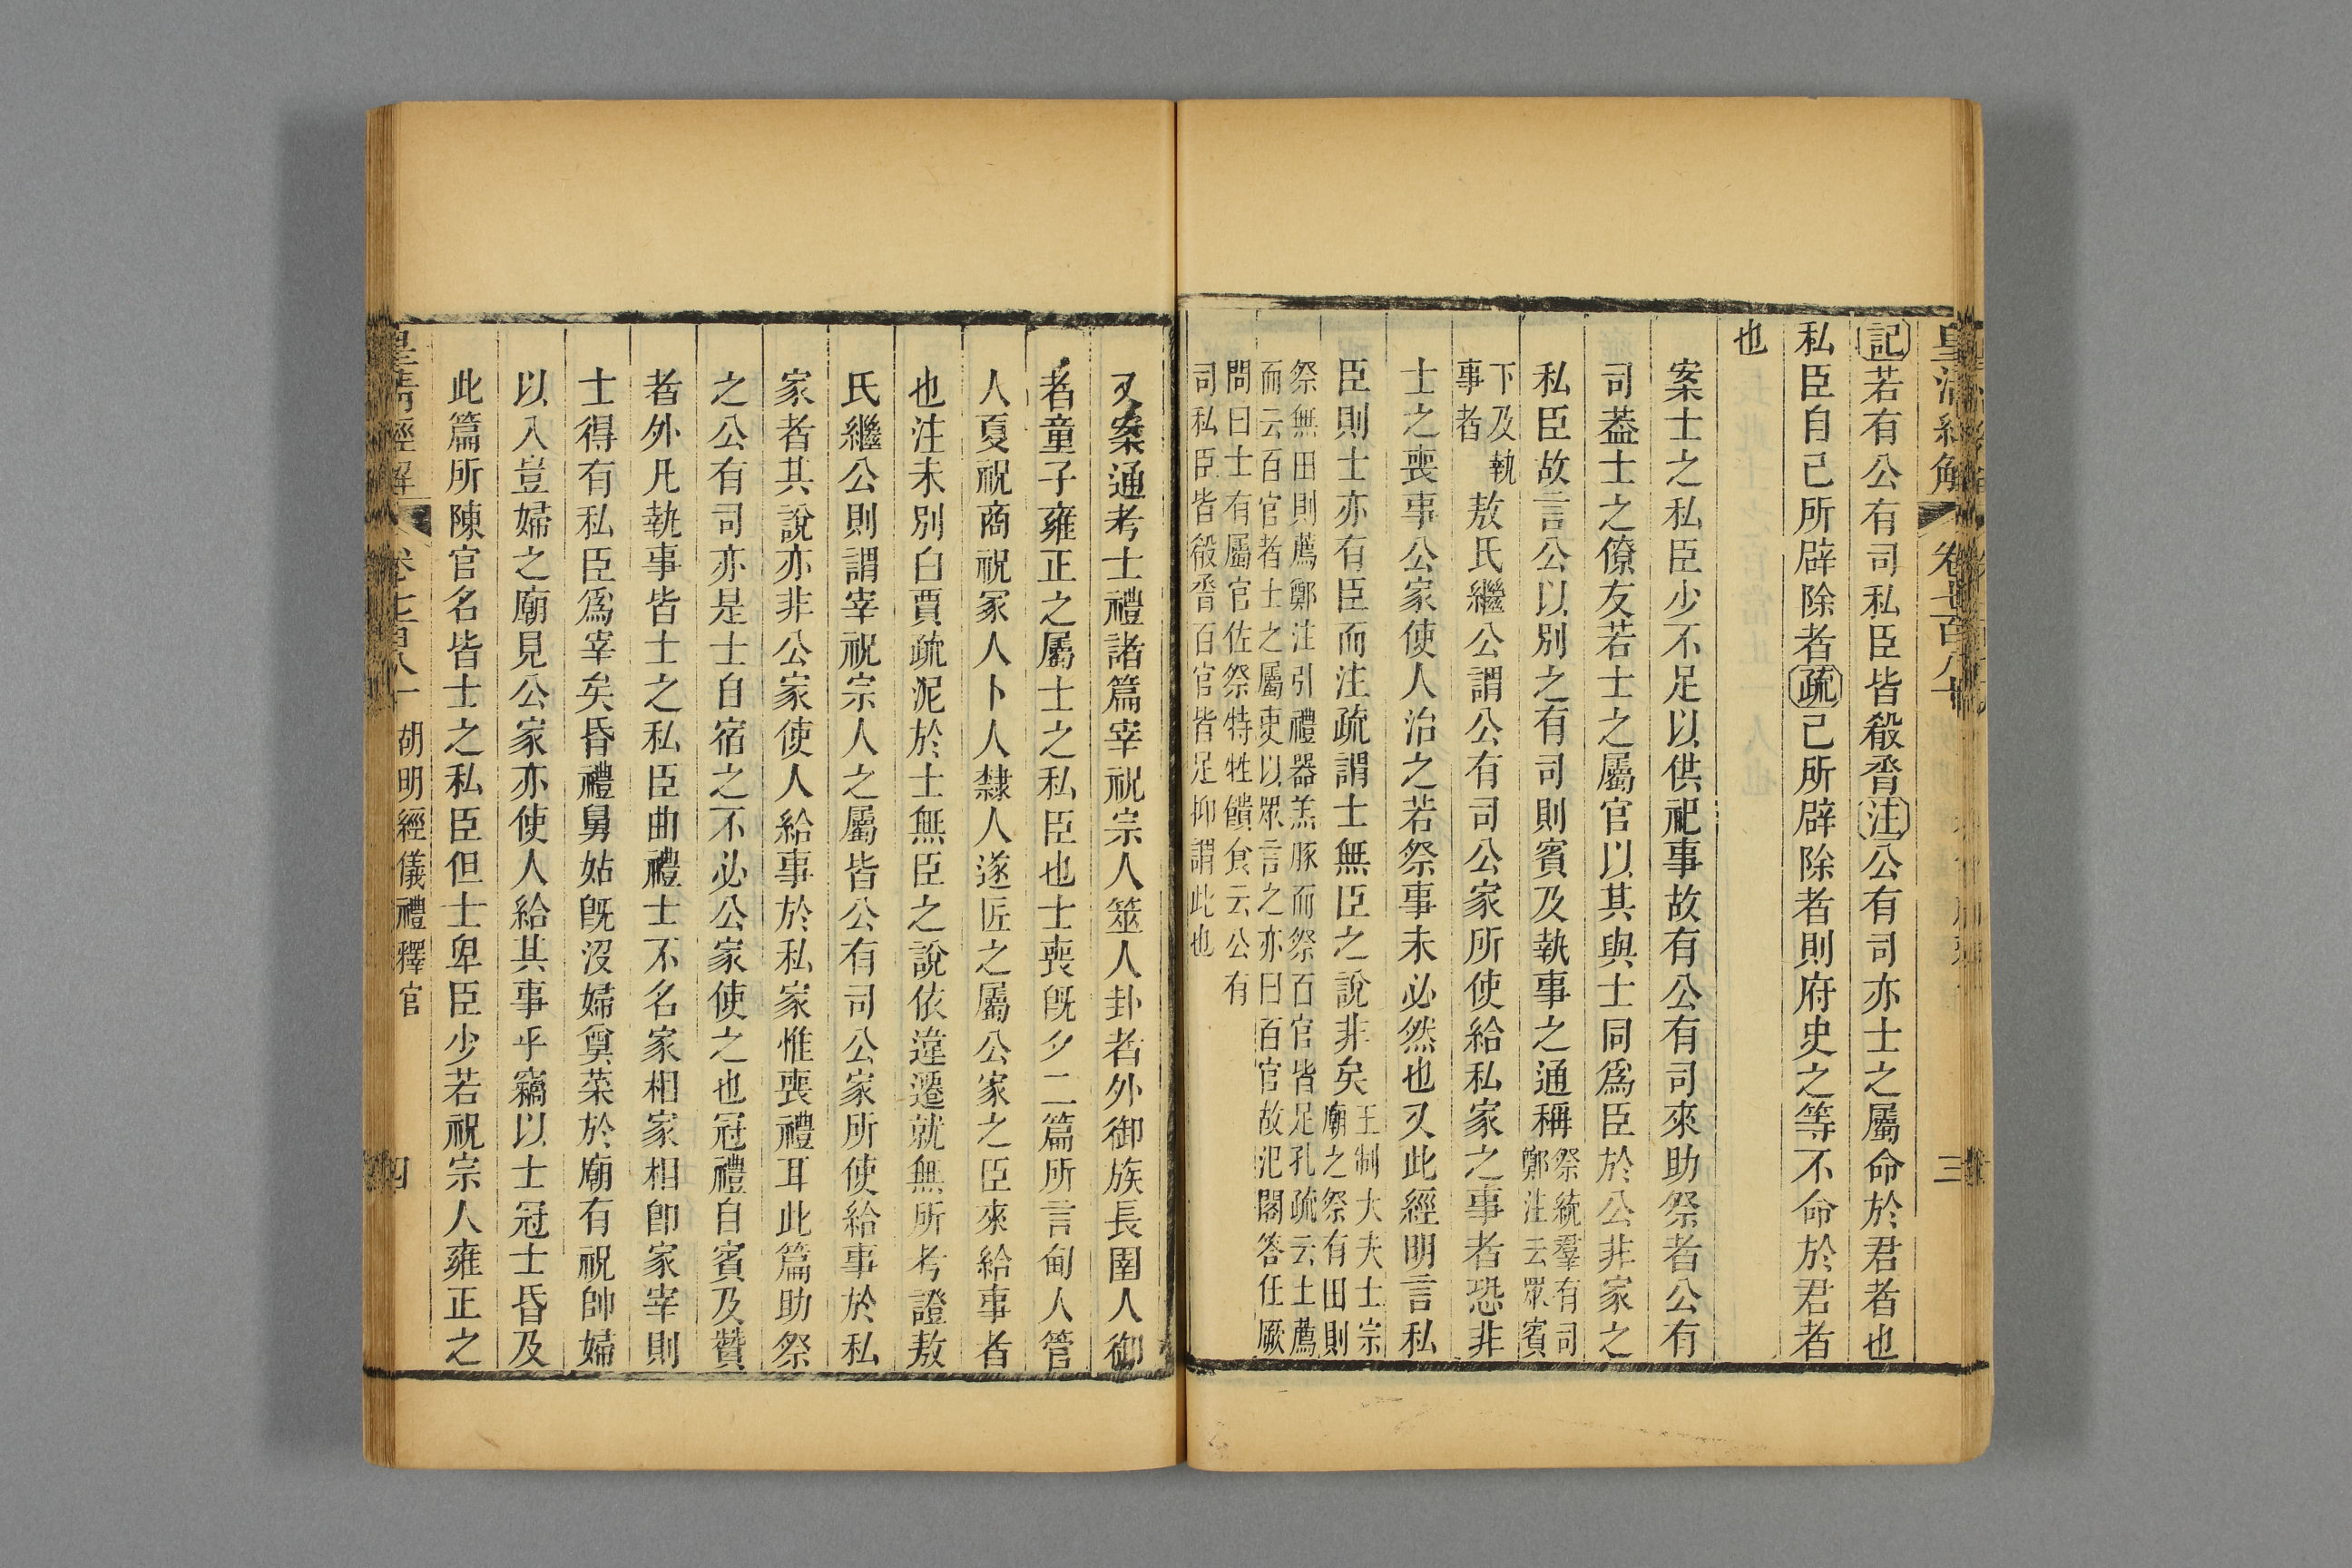 皇清經解 卷七百八十 三
記若有公有司私臣皆殽脀注公有司亦士之屬命於君者也
私臣自己所辟除者疏己所辟除者則府史之等不命於君者
也
案士之私臣少不足以供祀事故有公有司來助祭者公有
司葢士之僚友若士之屬官以其與士同爲臣於公非家之
私臣故言公以別之有司則賓及執事之通稱祭統羣有司
鄭注云眾賓
下及執
事者敖氏繼公謂公有司公家所使給私家之事者恐非
士之喪事公家使人治之若祭事未必然也又此經明言私
臣則士亦有臣而注疏謂士無臣之說非矣王制大夫士宗
廟之祭有田則
祭無田則薦鄭注引禮器羔豚而祭百官皆足孔疏云士薦
而云百官者士之屬吏以眾言之亦曰百官故氾閣答任厥
問曰士有屬官佐祭特牲饋食云公有
司私臣皆殽脀百官皆足抑謂此也
又案通考士禮諸篇宰祝宗人筮人卦者外御族長圉人御
者童子雍正之屬士之私臣也士喪旣夕二篇所言甸人管
人夏祝商祝冢人卜人隸人遂匠之屬公家之臣來給事者
也注未別白賈疏泥於士無臣之說依違遷就無所考證敖
氏繼公則謂宰祝宗人之屬皆公有司公家所使給事於私
家者其說亦非公家使人給事於私家惟喪禮耳此篇助祭
之公有司亦是士自宿之不必公家使之也冠禮自賓及贊
者外凡執事皆士之私臣曲禮士不名家相家相卽家宰則
士得有私臣爲宰矣昏禮舅姑旣沒婦奠菜於廟有祝帥婦
以入豈婦之廟見公家亦使人給其事乎竊以士冠士昏及
此篇所陳官名皆士之私臣但士卑臣少若祝宗人雍正之
皇清經解 卷七百八十一 胡明經儀禮釋官 四